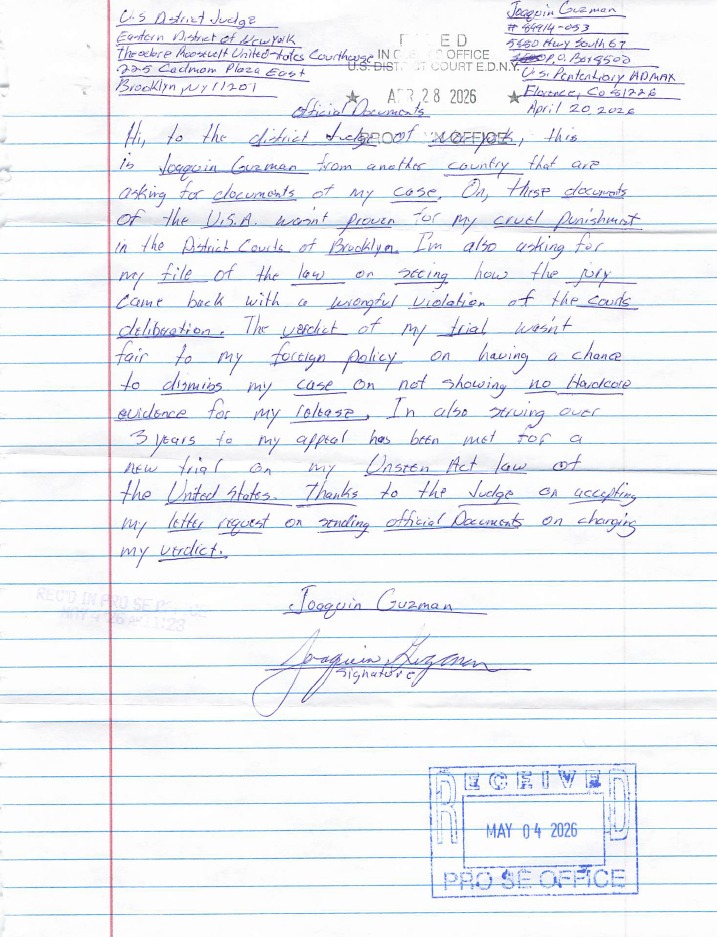 U.S District Judge
Eastern District of New York
Theodore Roosevelt United States Courthouse
225 Cadmom Plaza East
Brooklyn, NY 11201
Joaquin Guzman
# 89914-053
5880 Hwy South 67
P.O. Box 8500
U.S. Pententiory ADMAX
Florence, Co 81226
April 20, 2026
ED
IN OFFICE
U.S. DISTRICT COURT E.D.N.Y.
★ APR 28 2026 ★
PRO SE OFFICE
Official Documents
Hi, to the district Judge of New York, this
is Joaquin Guzman from another country that are
asking for documents of my case. On, these documents
of the U.S.A. wasn't proven for my cruel punishment
in the District Courts of Brooklyn. I'm also asking for
my file of the law on seeing how the jury
came back with a wrongful violation of the courts
deliberation. The verdict of my trial wasn't
fair to my foreign policy on having a chance
to dismiss my case on not showing no Hardcore
evidence for my release. I'm also serving over
3 years to my appeal has been met for a
new trial on my Unseen Act law of
the United States. Thanks to the Judge on accepting
my letter request on sending official Documents on charging
my verdict.
REC'D IN PRO SE OFFICE
MAY 4 '26 11:23
Joaquin Guzman
Joaquin Guzman
Signature
RECEIVED
R D
MAY 04 2026
PRO SE OFFICE